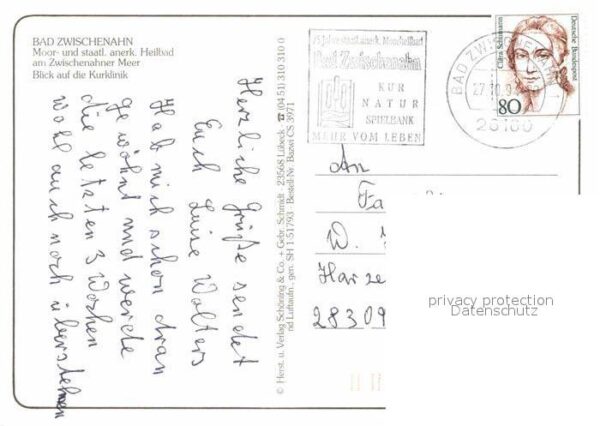 BAD ZWISCHENAHN
Moor- und staatl. anerk. Heilbad
am Zwischenahner Meer
Blick auf die Kurklinik
Herzliche Grüße sendet
Euch Luise Wolters
Hab mich schon dran
gewöhnt und werde
die letzten 3 Wochen
wohl auch noch überstehen
© Herst. u. Verlag Schöning & Co. + Gebr. Schmidt · 23568 Lübeck ☎ (04 51) 310 310 0
nd Luftaufn., gen. SH 1-51793 · Bestell-Nr. Bazwi CS 3971
75 Jahre staatl. anerk. Moorheilbad
Bad Zwischenahn
KUR
NATUR
SPIELBANK
MEHR VOM LEBEN
BAD ZWISCHENAHN
26160
Clara Schumann
Deutsche Bundespost
80
An
Fa
W.
28309
privacy protection
Datenschutz